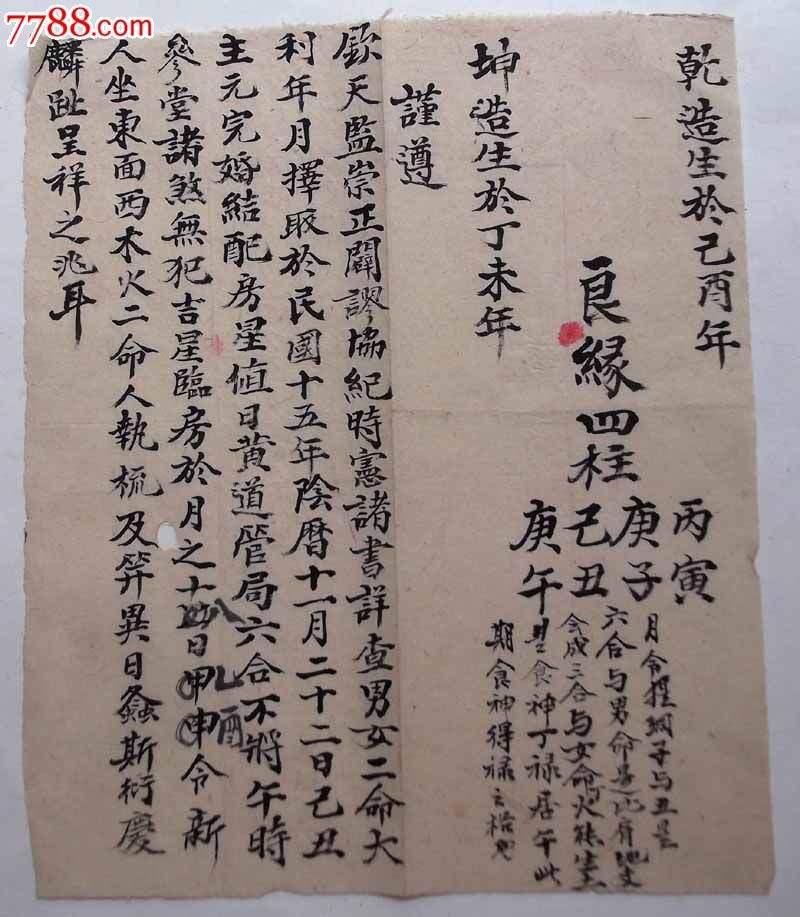 7788.com
乾造生於己酉年
良緣四柱
丙寅
庚子
己丑
庚午
月令提綱子與丑是
六合與男命是比肩地支
会成三合與女命火能生土
是食神丁禄居午此
期食神得禄之格也
坤造生於丁未年
謹遵
欽天監崇正闢謬協紀時憲諸書詳查男女二命大
利年月擇取於民國十五年陰曆十一月二十二日己丑
主元完婚結配房星值日黄道管局六合不將午時
參堂諸煞無犯吉星臨房於月之十八日乙酉令新
人坐東面西木火二命人執梳及笄異日螽斯衍慶
麟趾呈祥之兆耳